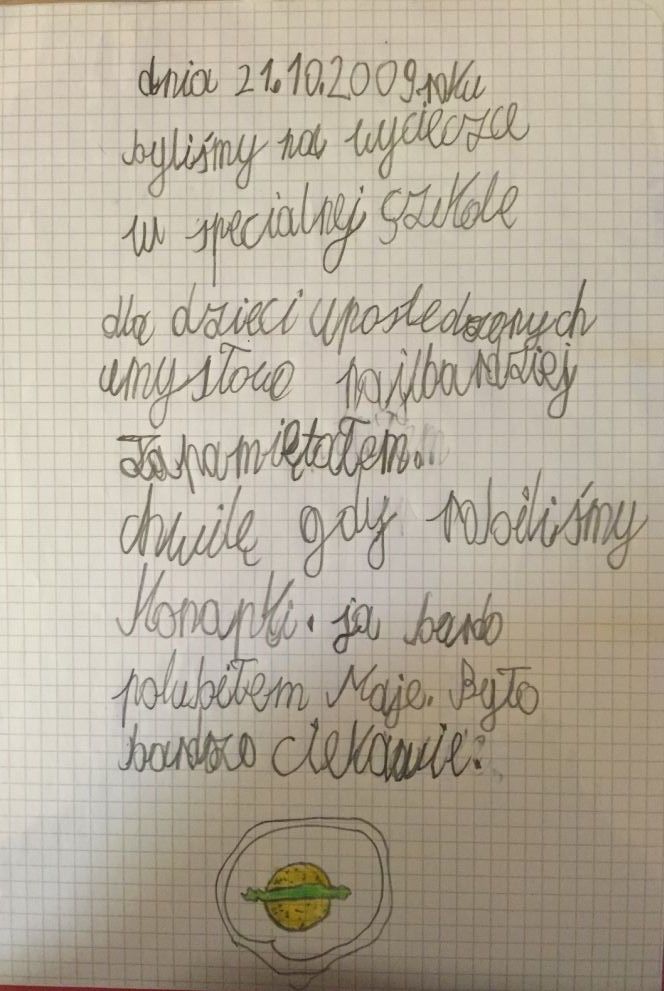 dnia 21.10.2009 roku
byliśmy na wyciecze
w specialnej szkole
dla dzieci uposledzonych
umysłowo najbardziej
zapamiętałem.
chwilę gdy robiliśmy
Konapki. ja bardo
polubiłem Maje. Było
bardzo ciekawie.